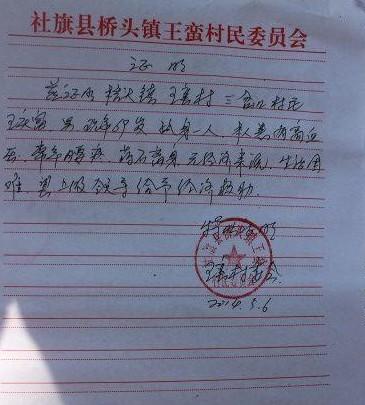 社旗县桥头镇王蛮村民委员会
证明
兹证明桥头镇王蛮村三合口村民
王庆富,男,现年59岁,独身一人,本人患有高血
压,常年腰疼,药不离身,无经济来源,生活困
难,望上级领导给予经济救助
特此证明
王蛮村委会
2014.5.6